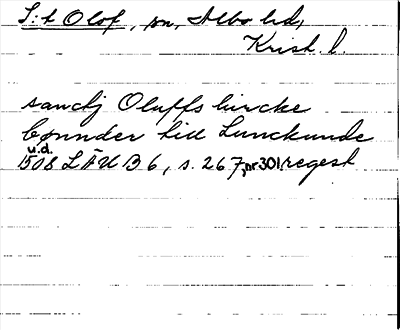 S:t Olof, sn, Albo hd,
Krist. l.
sanctj Oluffs kircke
bønnder till Lunckunde
u.d.
1508 LÄU B 6, s. 267, nr 301, regest